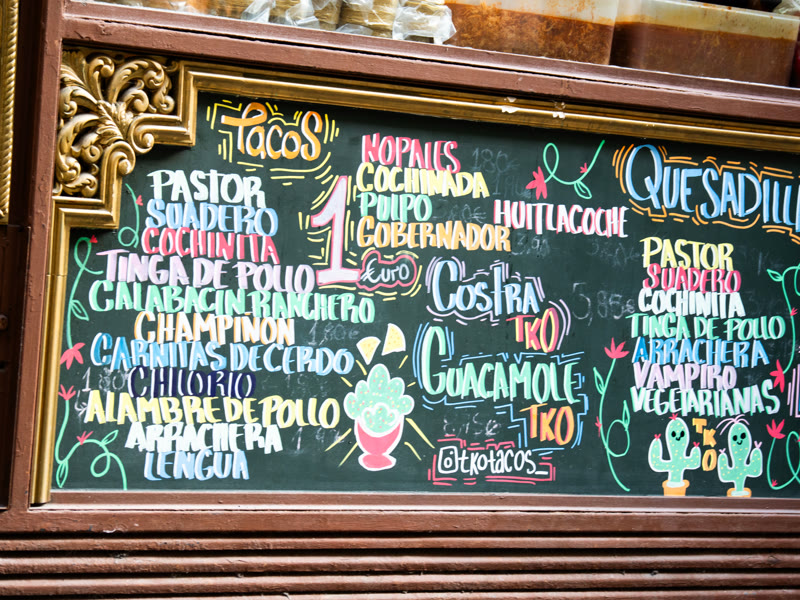 Tacos
PASTOR
SUADERO
COCHINITA
TINGA DE POLLO
CALABACIN RANCHERO
CHAMPIÑON
CARNITAS DE CERDO
CHILORIO
ALAMBRE DE POLLO
ARRACHERA
LENGUA
1
€uro
NOPALES
COCHINADA
PULPO
GOBERNADOR
HUITLACOCHE
Costra
TKO
GUACAMOLE
TKO
@tkotacos_
QUESADILL
PASTOR
SUADERO
COCHINITA
TINGA DE POLLO
ARRACHERA
VAMPIRO
VEGETARIANAS
TKO